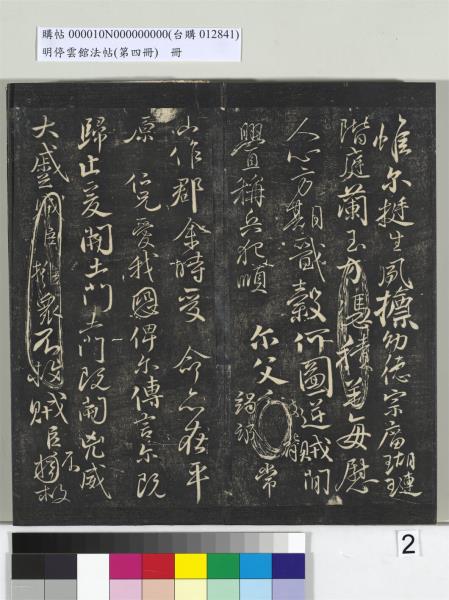 購帖 000010N000000000(台購 012841)
明停雲館法帖(第四冊) 冊
惟爾挺生夙標幼德宗廟瑚璉
階庭蘭玉方憑積善每慰
人心方期戩穀何圖逆賊間
釁稱兵犯順 爾父竭誠常
山作郡余時受 命亦在平
原 仁兄愛我恐俾爾傳言爾既
歸止爰開土門土門既開凶威
大蹙賊臣擁眾不救賊臣不擁救
2